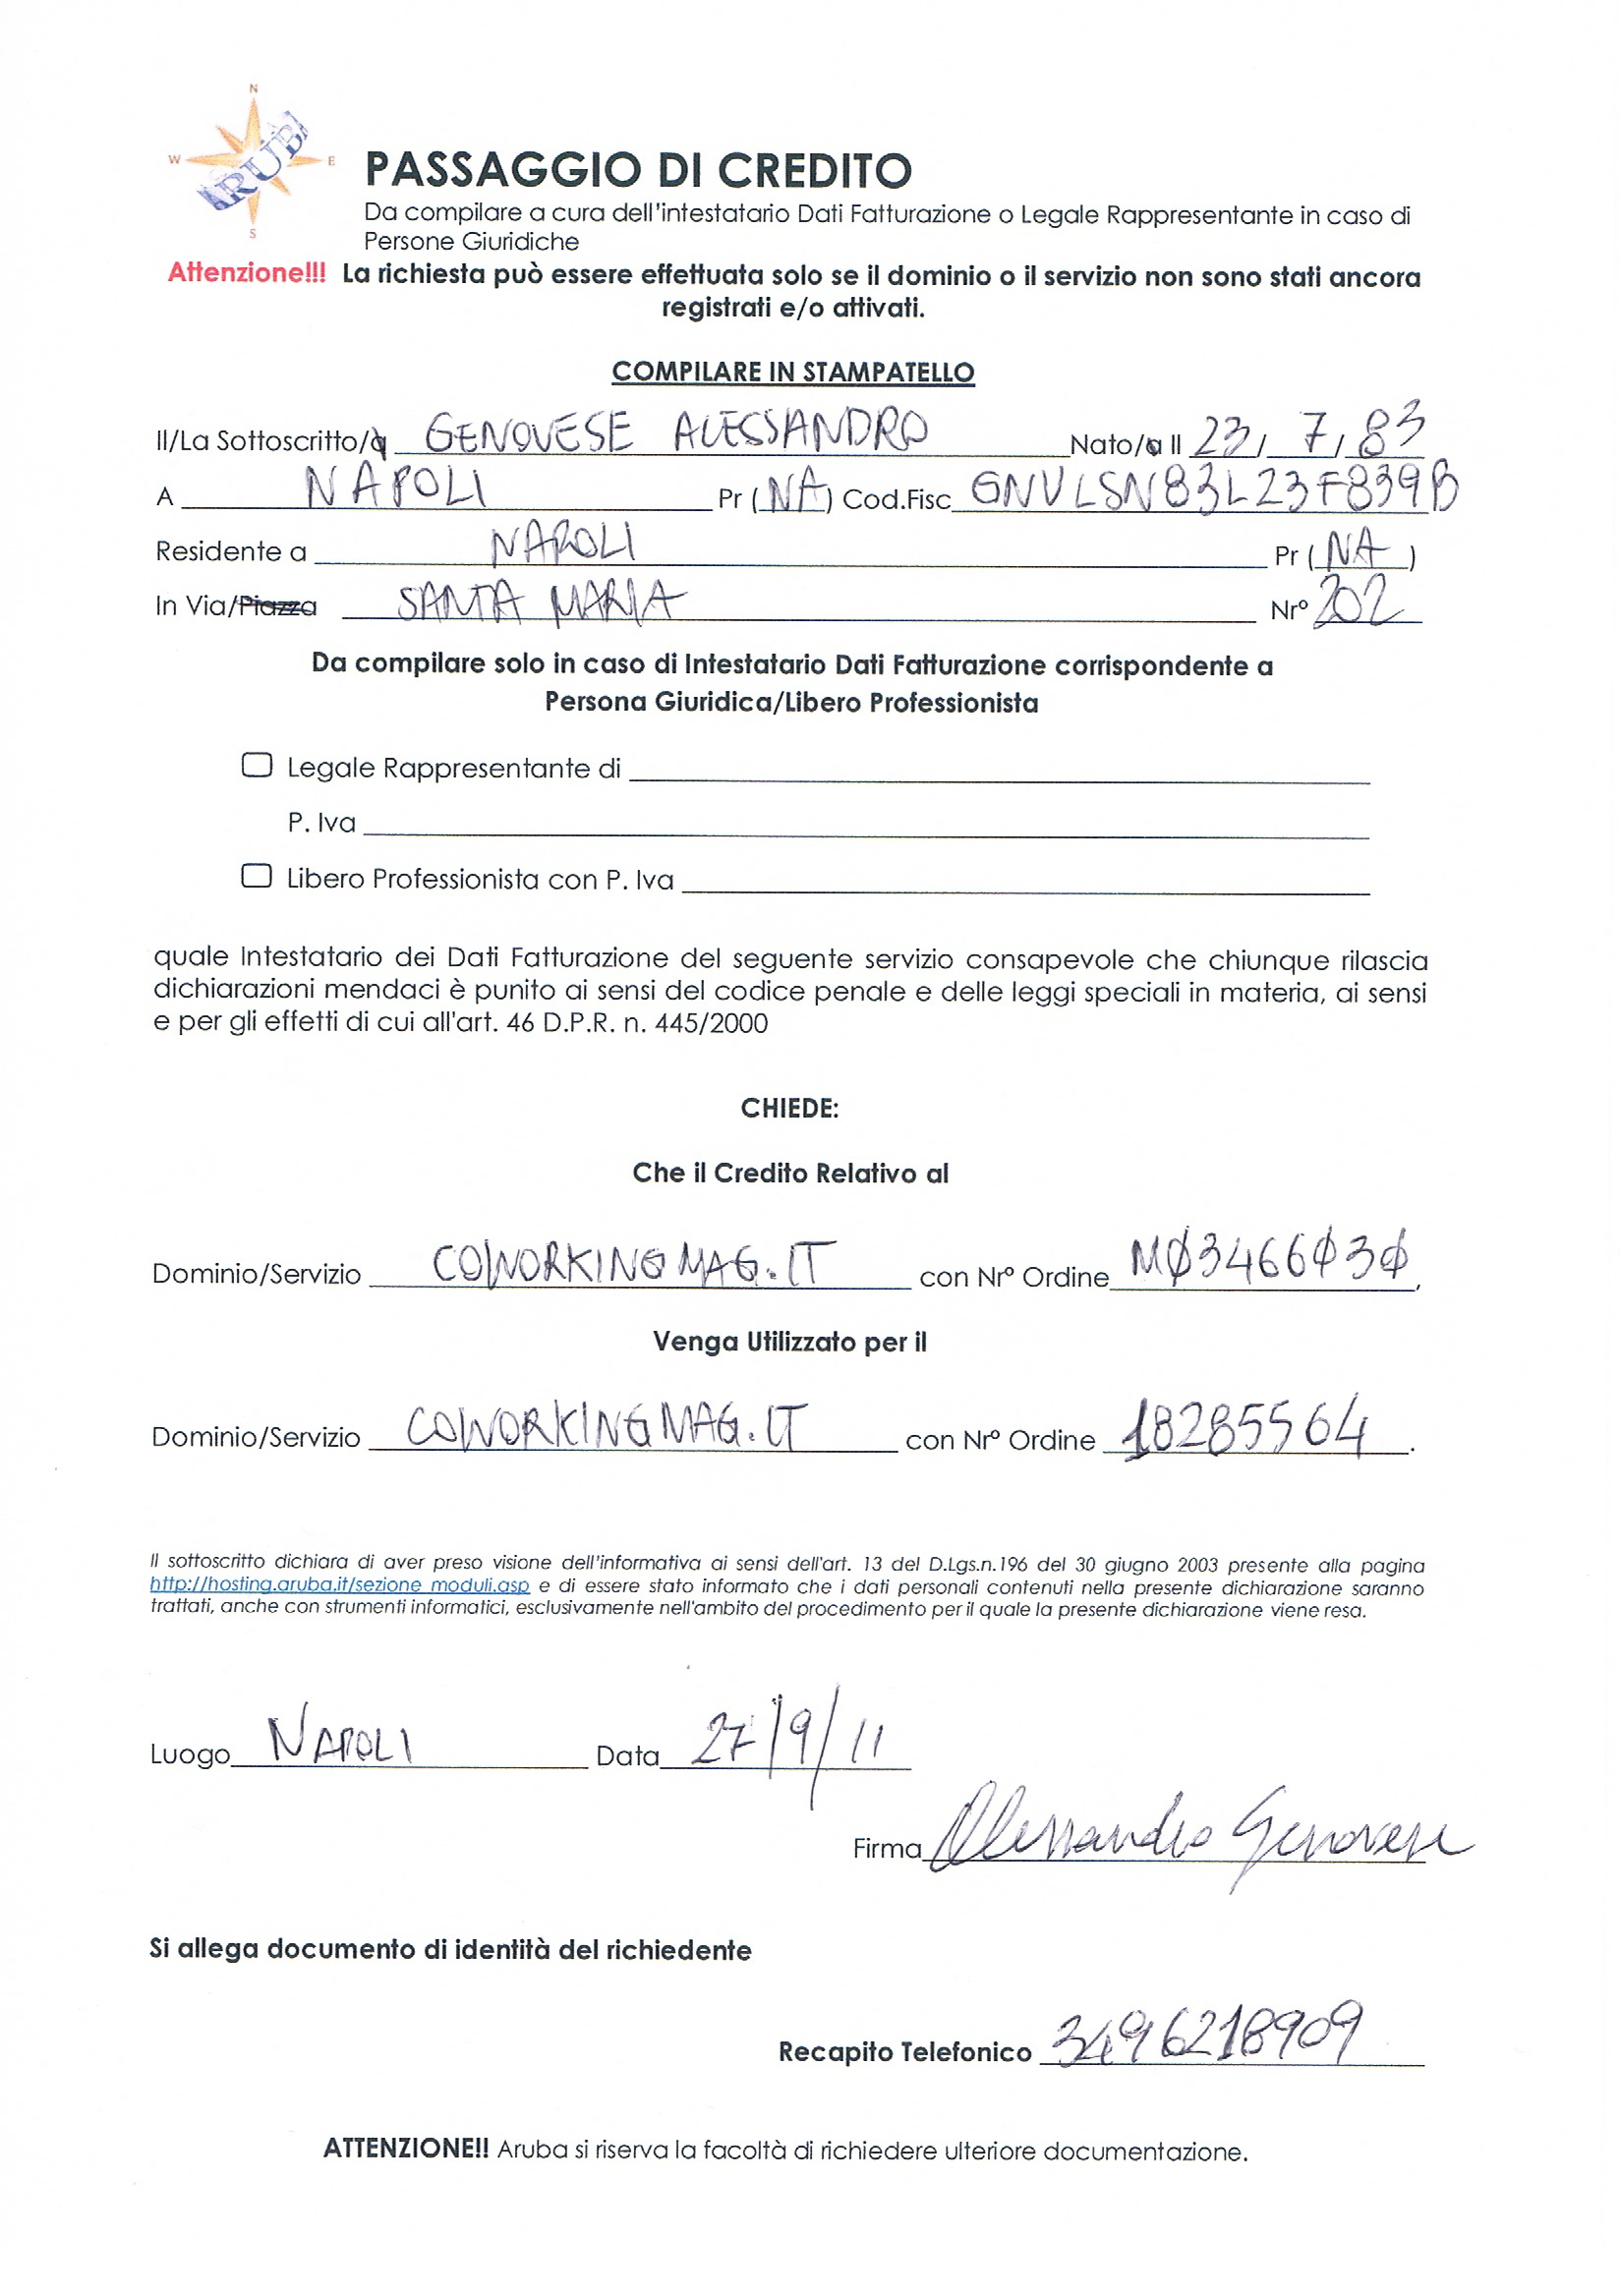 N
W ARUBA E
S
PASSAGGIO DI CREDITO
Da compilare a cura dell'intestatario Dati Fatturazione o Legale Rappresentante in caso di
Persone Giuridiche
Attenzione!!! La richiesta può essere effettuata solo se il dominio o il servizio non sono stati ancora
registrati e/o attivati.
COMPILARE IN STAMPATELLO
Il/La Sottoscritto/a GENOVESE ALESSANDRO Nato/a Il 23/ 7/ 83
A NAPOLI Pr (NA) Cod.Fisc GNVLSN83L23F839B
Residente a NAPOLI Pr (NA)
In Via/Piazza SANTA MARIA Nr° 202
Da compilare solo in caso di Intestatario Dati Fatturazione corrispondente a
Persona Giuridica/Libero Professionista
Legale Rappresentante di
P. Iva
Libero Professionista con P. Iva
quale Intestatario dei Dati Fatturazione del seguente servizio consapevole che chiunque rilascia
dichiarazioni mendaci è punito ai sensi del codice penale e delle leggi speciali in materia, ai sensi
e per gli effetti di cui all'art. 46 D.P.R. n. 445/2000
CHIEDE:
Che il Credito Relativo al
Dominio/Servizio COWORKINGMAG.IT con Nr° Ordine MØ3466Ø3Ø,
Venga Utilizzato per il
Dominio/Servizio COWORKINGMAG.IT con Nr° Ordine 18285564.
Il sottoscritto dichiara di aver preso visione dell'informativa ai sensi dell'art. 13 del D.Lgs.n.196 del 30 giugno 2003 presente alla pagina
http://hosting.aruba.it/sezione_moduli.asp e di essere stato informato che i dati personali contenuti nella presente dichiarazione saranno
trattati, anche con strumenti informatici, esclusivamente nell'ambito del procedimento per il quale la presente dichiarazione viene resa.
Luogo NAPOLI Data 27/9/11
Firma Alessandro Genovese
Si allega documento di identità del richiedente
Recapito Telefonico 3496218909
ATTENZIONE!! Aruba si riserva la facoltà di richiedere ulteriore documentazione.